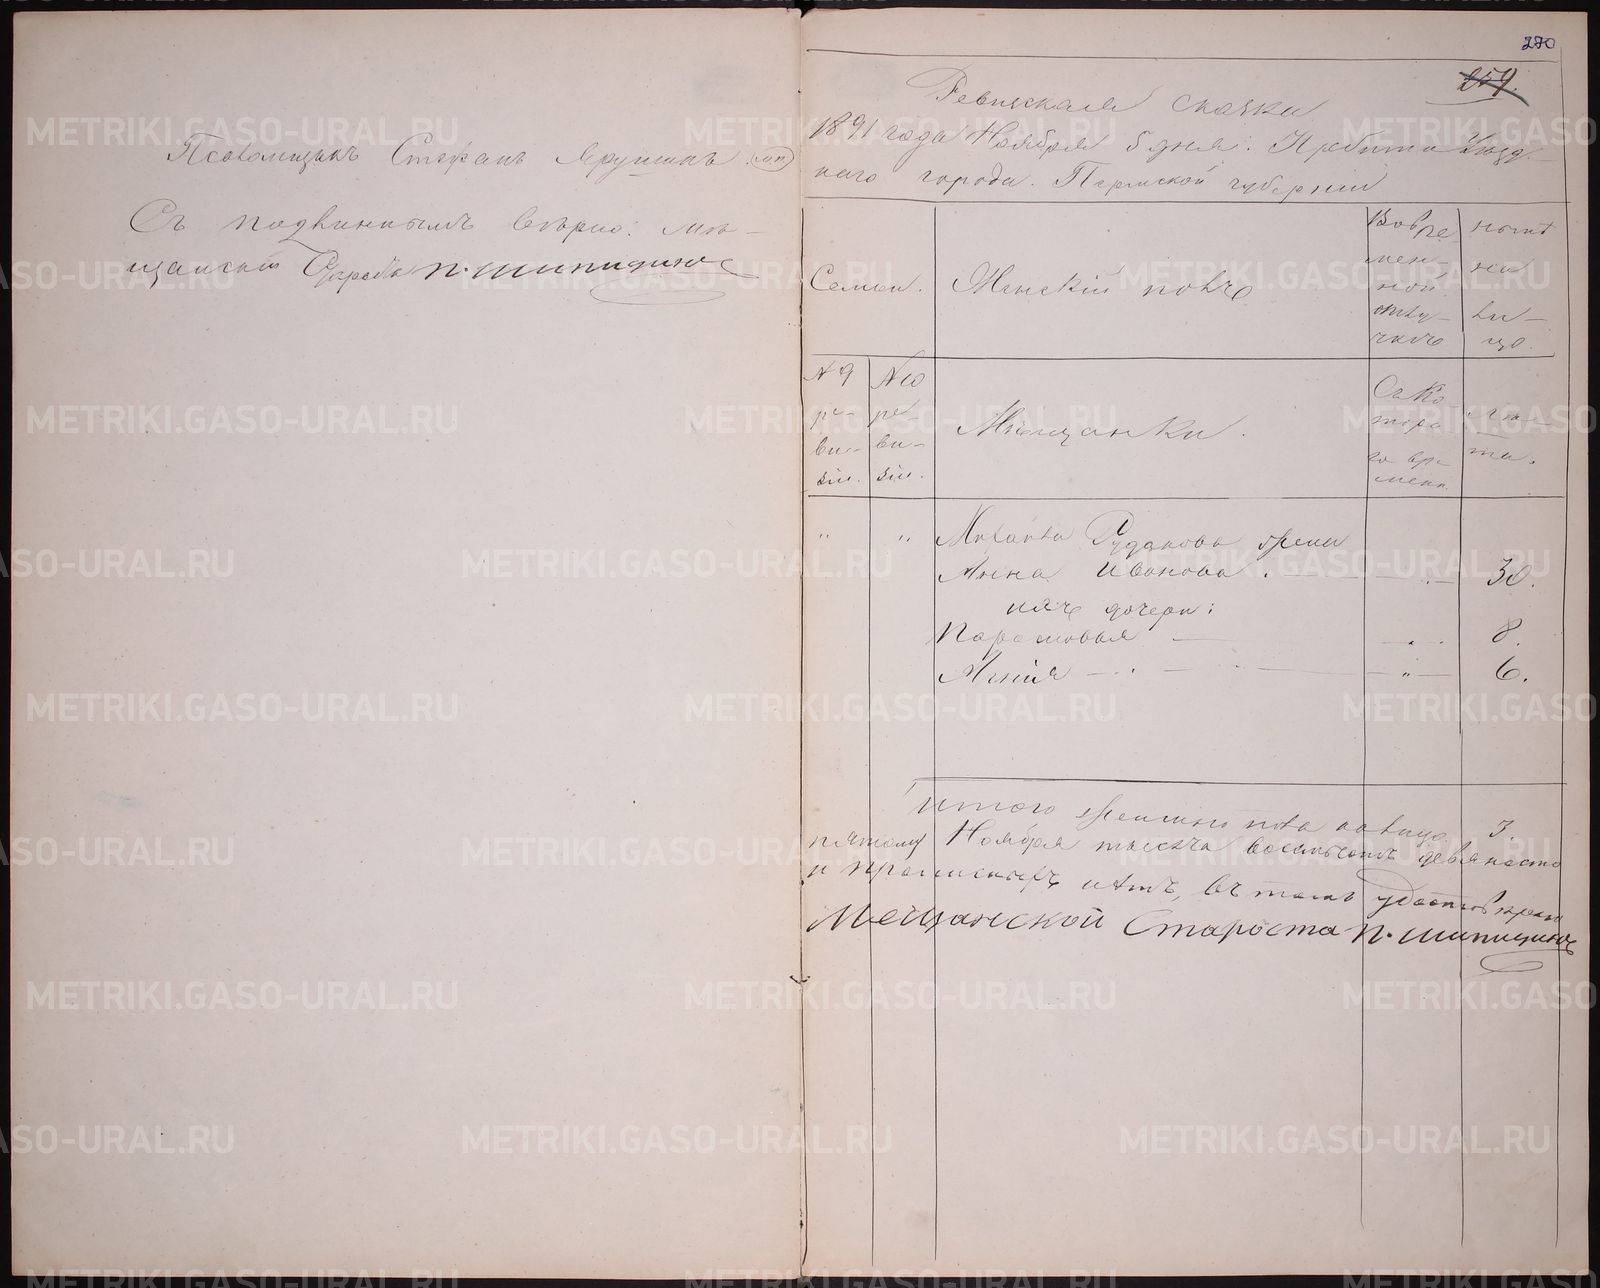 Псаломщикъ Стефанъ Ярушинъ (МП)
Съ подлиннымъ вѣрно: Мѣ-
щанскій Староста П. Шипицинъ
270
259.
Ревизская сказка
1891 года Ноября 5 дня: Ирбита Уѣзд-
наго города. Пермской губерніи
Семьи.
Женскій полъ
Вовре-
мен-
ной
отлу-
чкѣ
Ны нѣ
на
ли-
цо.
№ 9
ре-
ви-
зіи.
№ 10
ре-
ви-
зіи.
Мѣщанки.
Съ ко-
тора
го вре-
мени.
Лѣ-
та.
" " Михаила Рудакова жена
Анна Иванова . — 30.
ихъ дочери:
Парасковья — " 8.
Анна — " — 6.
Итого женскаго пола на лицо 3.
пятому Ноября тысяча восемьсотъ девяносто
Мещанской Староста П. Шипицинъ
METRIKI.GASO-URAL.RU